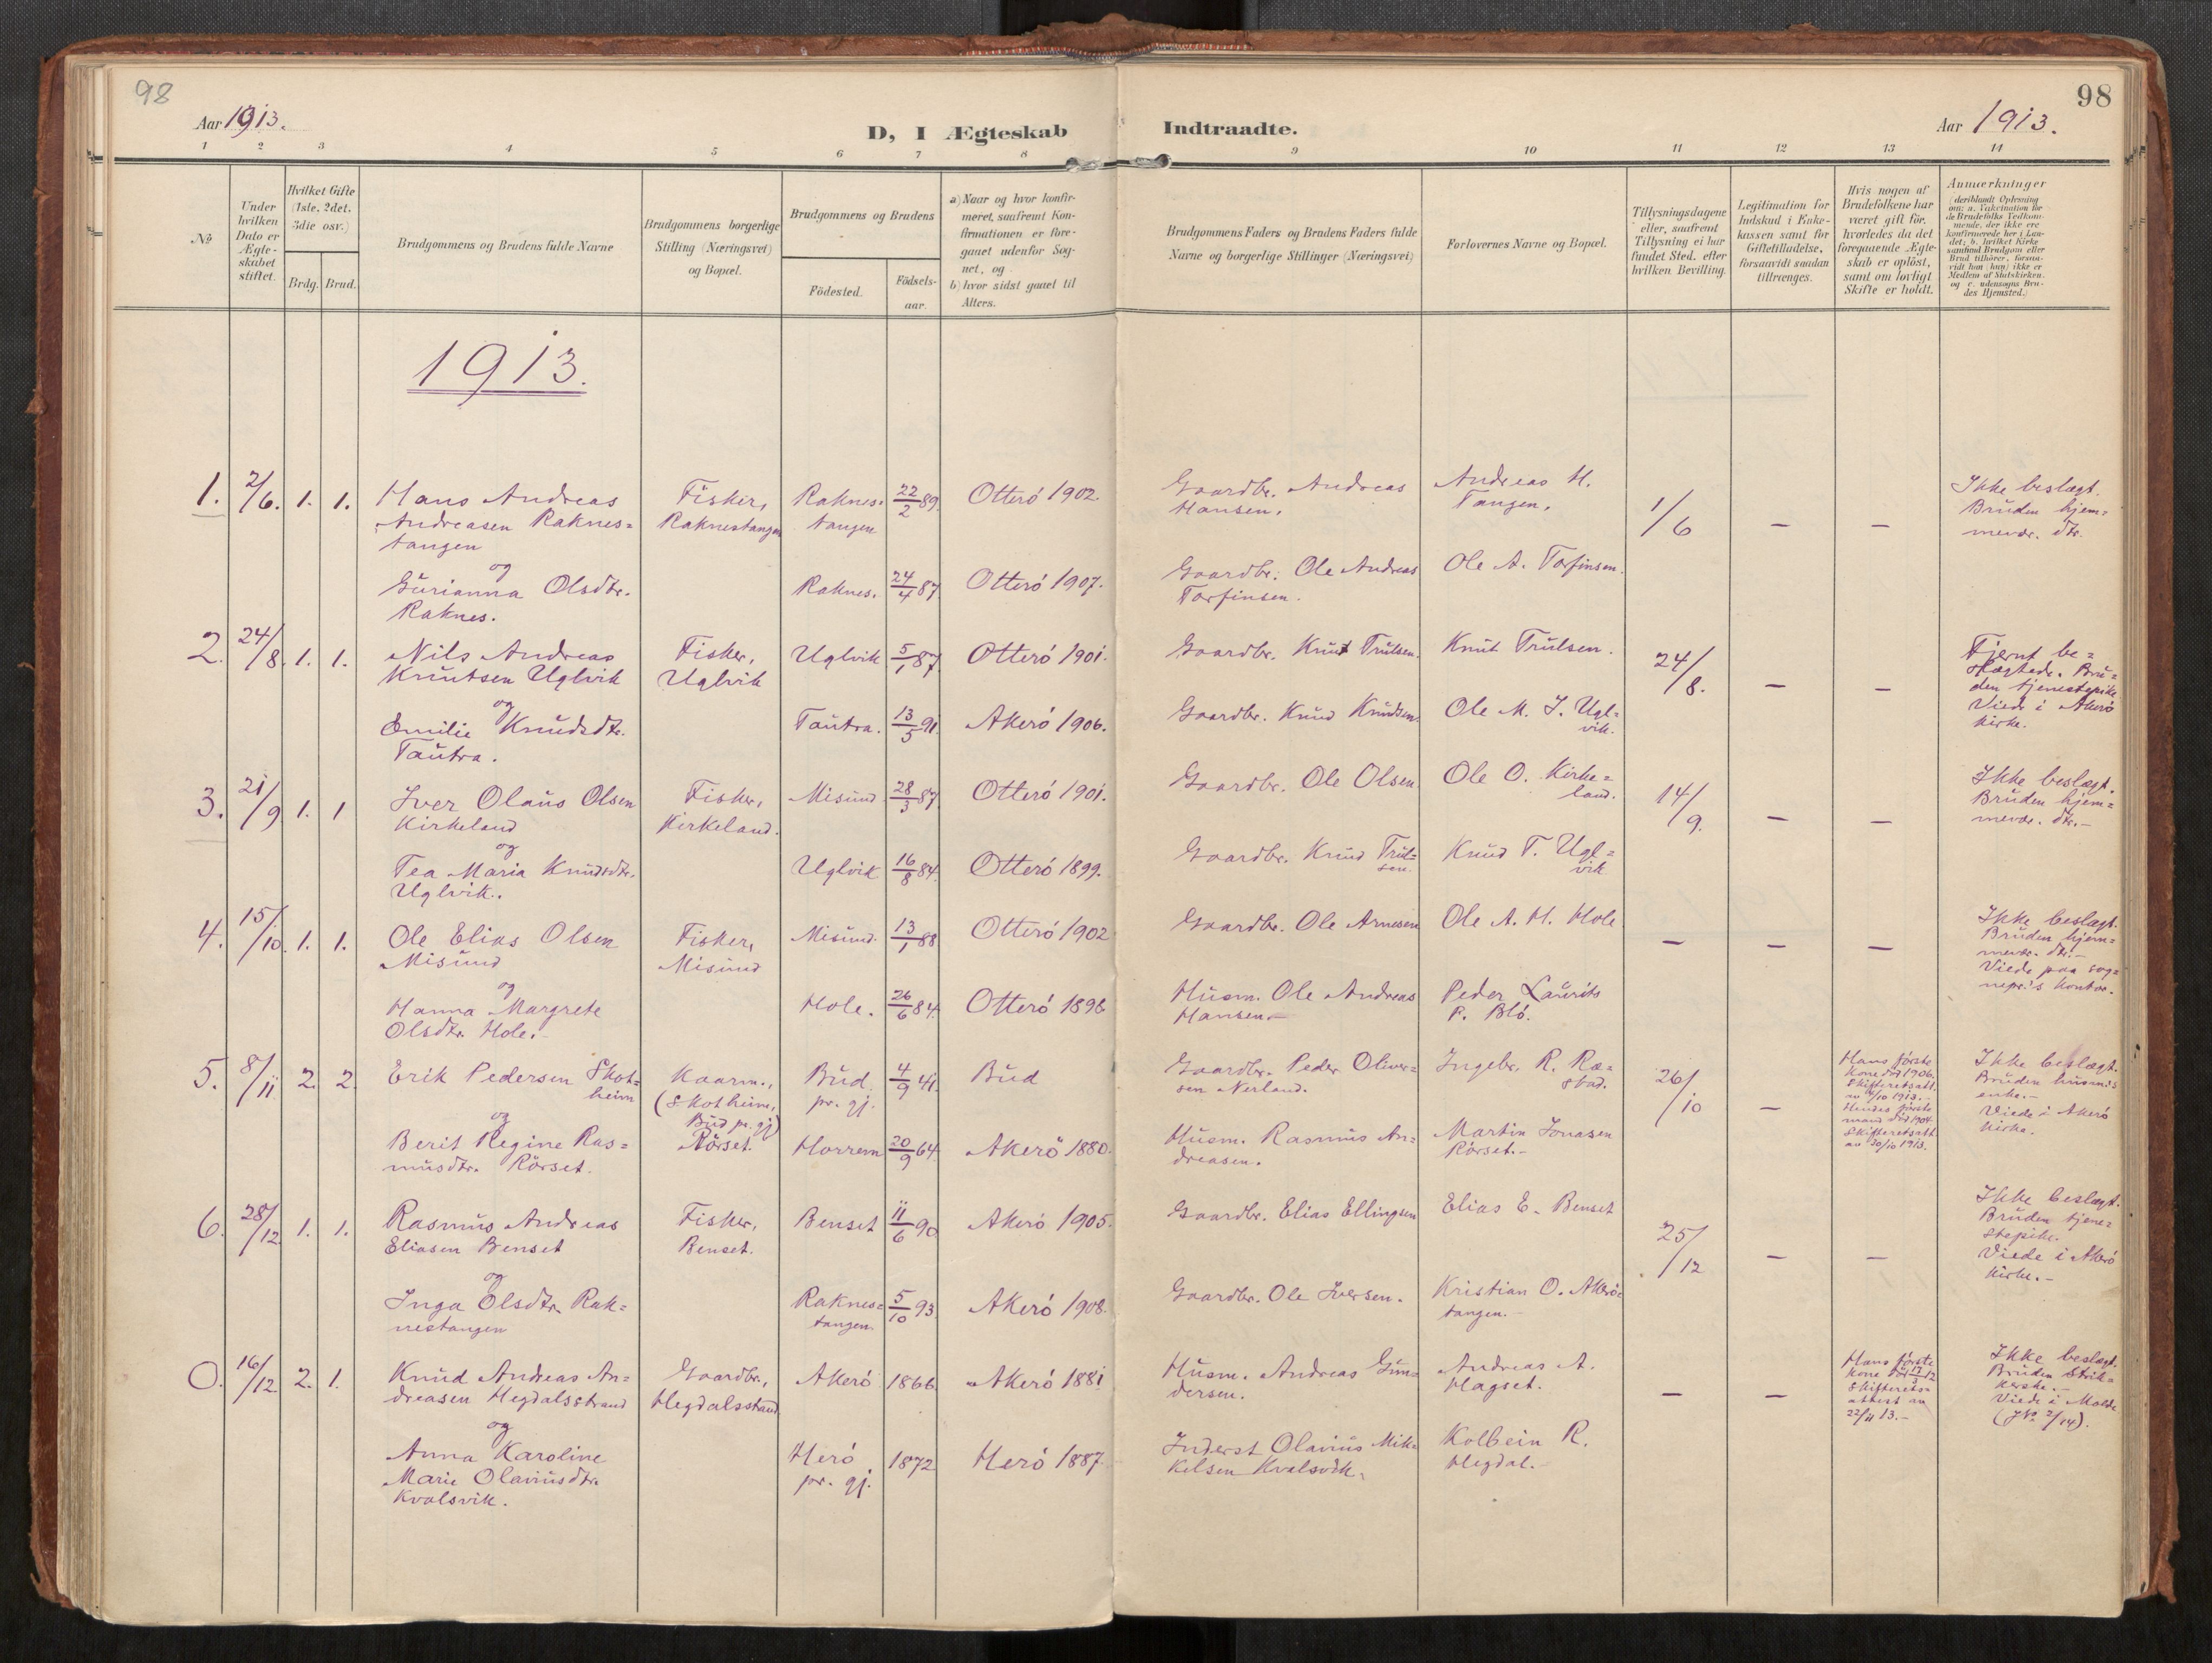 98
98
Aar 1913.
D, I Ægteskab Indtraadte.
Aar 1913.
1 2 3 4 5 6 7 8 9 10 11 12 13 14
No
Under
hvilken
Dato er
Ægte-
skabet
stiftet.
Hvilket Gifte
(1ste, 2det,
3die osv.)
Brdg. Brud.
Brudgommens og Brudens fulde Navne
Brudgommens borgerlige
Stilling (Næringsvei)
og Bopæl.
Brudgommens og Brudens
Födested.
Födsels-
aar.
a) Naar og hvor konfir-
meret, saafremt Kon-
firmationen er fore-
gaaet udenfor Sog-
net, og
b) hvor sidst gaaet til
Alters.
Brudgommens Faders og Brudens Faders fulde
Navne og borgerlige Stillinger (Næringsvei)
Forlovernes Navne og Bopæl.
Tillysningsdagene
eller, saafremt
Tillysning ei har
fundet Sted, efter
hvilken Bevilling.
Legitimation for
Indskud i Enke-
kassen samt for
Giftetilladelse,
forsaavidt saadan
tiltrænges.
Hvis nogen af
Brudefolkene har
været gift för,
hvorledes da det
foregaaende Ægte-
skab er oplöst,
samt om lovligt
Skifte er holdt.
Anmærkninger
(deriblandt Oplysning
om: a. Vakcination for
de Brudefolks Vedkom-
mende, der ikke ere
konfirmerede her i Lan-
det; b. hvilket Kirke
samfund Brudgom eller
Brud tilhörer, forsaa-
vidt han (hun) ikke er
Medlem af Statskirken,
og c. udensogns Bru-
des Hjemsted.)
1913.
1. 2/6. 1. 1.
Hans Andreas
Andreasen Raknes=
tangen
og
Gurianna Olsdtr.
Raknes.
Fisker,
Raknestangen
Raknes=
tangen
22/2 89.
Otterö 1902.
Raknes.
24/4 87
Otterö 1907.
Gaardbr. Andreas
Hansen.
Gaardbr. Ole Andreas
Torfinsen.
Andreas H.
Tangen.
Ole A. Torfinsen.
1/6
—
—
Ikke beslægt.
Bruden hjem=
mevær. dtr.
2. 24/8. 1. 1.
Nils Andreas
Knutsen Uglvik
og
Emilie Knudsdtr.
Tautra.
Fisker,
Uglvik
Uglvik
5/1 87
Otterö 1901.
Tautra.
13/5 91.
Akerö 1906.
Gaardbr. Knut Trulsen.
Gaardbr. Knud Knudsen.
Knut Trulsen.
Ole M. J. Ugl=
vik.
24/8.
—
—
Fjernt be=
slægtede. Bru=
den tjenestepike
Viede i Akerö
kirke.
3. 21/9 1. 1
Iver Olaus Olsen
Kirkeland
og
Tea Maria Knudsdtr.
Uglvik.
Fisker,
Kirkeland.
Misund
28/3 87
Otterö 1901.
Uglvik
16/8 84.
Otterö 1899.
Gaardbr. Ole Olsen
Gaardbr. Knud Trul=
sen.
Ole O. Kirke=
land.
Knud T. Ugl=
vik
14/9.
—
—
Ikke beslægt.
Bruden hjem=
mevær. dtr.—
4. 15/10. 1. 1.
Ole Elias Olsen
Misund
og
Hanna Margrete
Olsdtr. Hole.
Fisker,
Misund
Misund.
13/1 88
Otterö 1902
Hole.
26/6 84.
Otterö 1898
Gaardbr. Ole Arnesen
Husm. Ole Andreas
Hansen.—
Ole A. H. Hole
Peder Laurits
P. Blö.
—
—
—
Ikke beslægt.
Bruden hjem=
mevær. dtr.—
Viede paa sog=
nepr.'s kontor.
5. 8/11 2. 2.
Erik Pedersen Skot=
heim
og
Berit Regine Ras=
musdtr. Rörset.
Kaarm.,
(Skotheim,
Bud pr. gj.)
Rörset.
Bud
pr. gj.
4/9 41.
Bud
Horrem
20/9 64.
Akerö 1880.
Gaardbr. Peder Oliver=
sen Nerland.
Husm. Rasmus An=
dreasen.
Ingebr. R. Ræ=
stad.
Martin Jonasen
Rörset.—
26/10
—
Hans förste
kone död 1906.
Skifteretsatt.
av /10 1913.—
Hendes förste
mand död 1904
Skifteretsatt.
av 30/10 1913.
Ikke beslægt.
Bruden husm.'s
enke.—
Viede i Akerö
kirke.
6. 28/12. 1. 1.
Rasmus Andreas
Eliasen Benset
og
Inga Olsdtr. Rak=
nestangen
Fisker,
Benset.
Benset
11/6 90.
Akerö 1905.
Raknes=
tangen.
5/10 93.
Akerö 1908.
Gaardbr. Elias Ellingsen
Gaardbr. Ole Iversen.
Elias E. Benset
Kristian O. Akerö=
tangen.—
25/12
—
—
Ikke beslægt.
Bruden tjene=
stepike.
Viede i Akerö
kirke.—
0. 16/12. 2. 1.
Knud Andreas An=
dreasen Hegdalsstrand
og
Anna Karoline
Marie Olaviusdtr.
Kvalsvik.
Gaardbr.,
Hegdalsstrand
Akerö
1866
Akerö 1881
Herö
pr. gj.
1872
Herö 1887
Husm. Andreas Gun=
dersen.
Inderst Olavius Mik=
kelsen Kvalsvik.
Andreas A.
Hagset.
Kolbein R.
Hegdal.—
—
—
Hans förste
kone död 17/3 12
Skifterets=
attest av
22/11 13.—
Ikke beslægt.
Bruden strik=
kerske.—
Viede i Molde
(J№ 2/14).